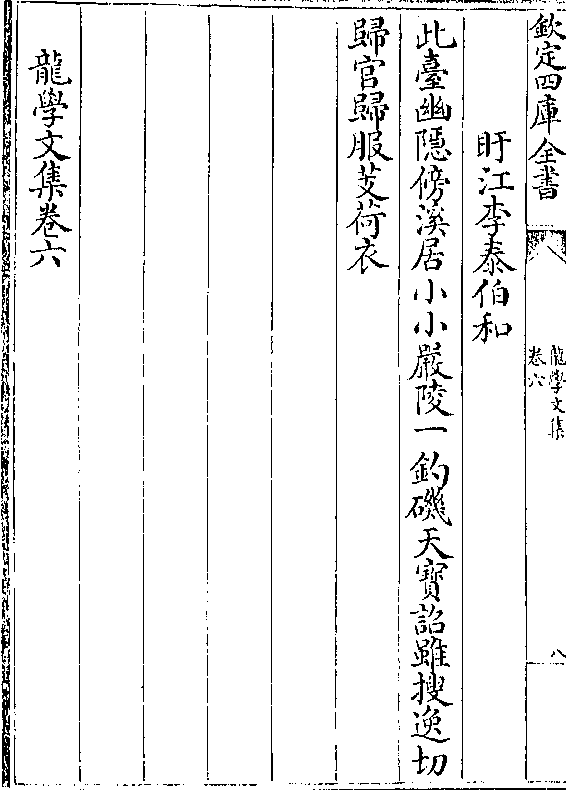 欽定四庫全書
龍學文集
卷六
八
盱江李泰伯和
此臺幽隱傍溪居小小嚴陵一釣磯天寶詔雖搜逸切
歸官歸服芰荷衣
龍學文集卷六